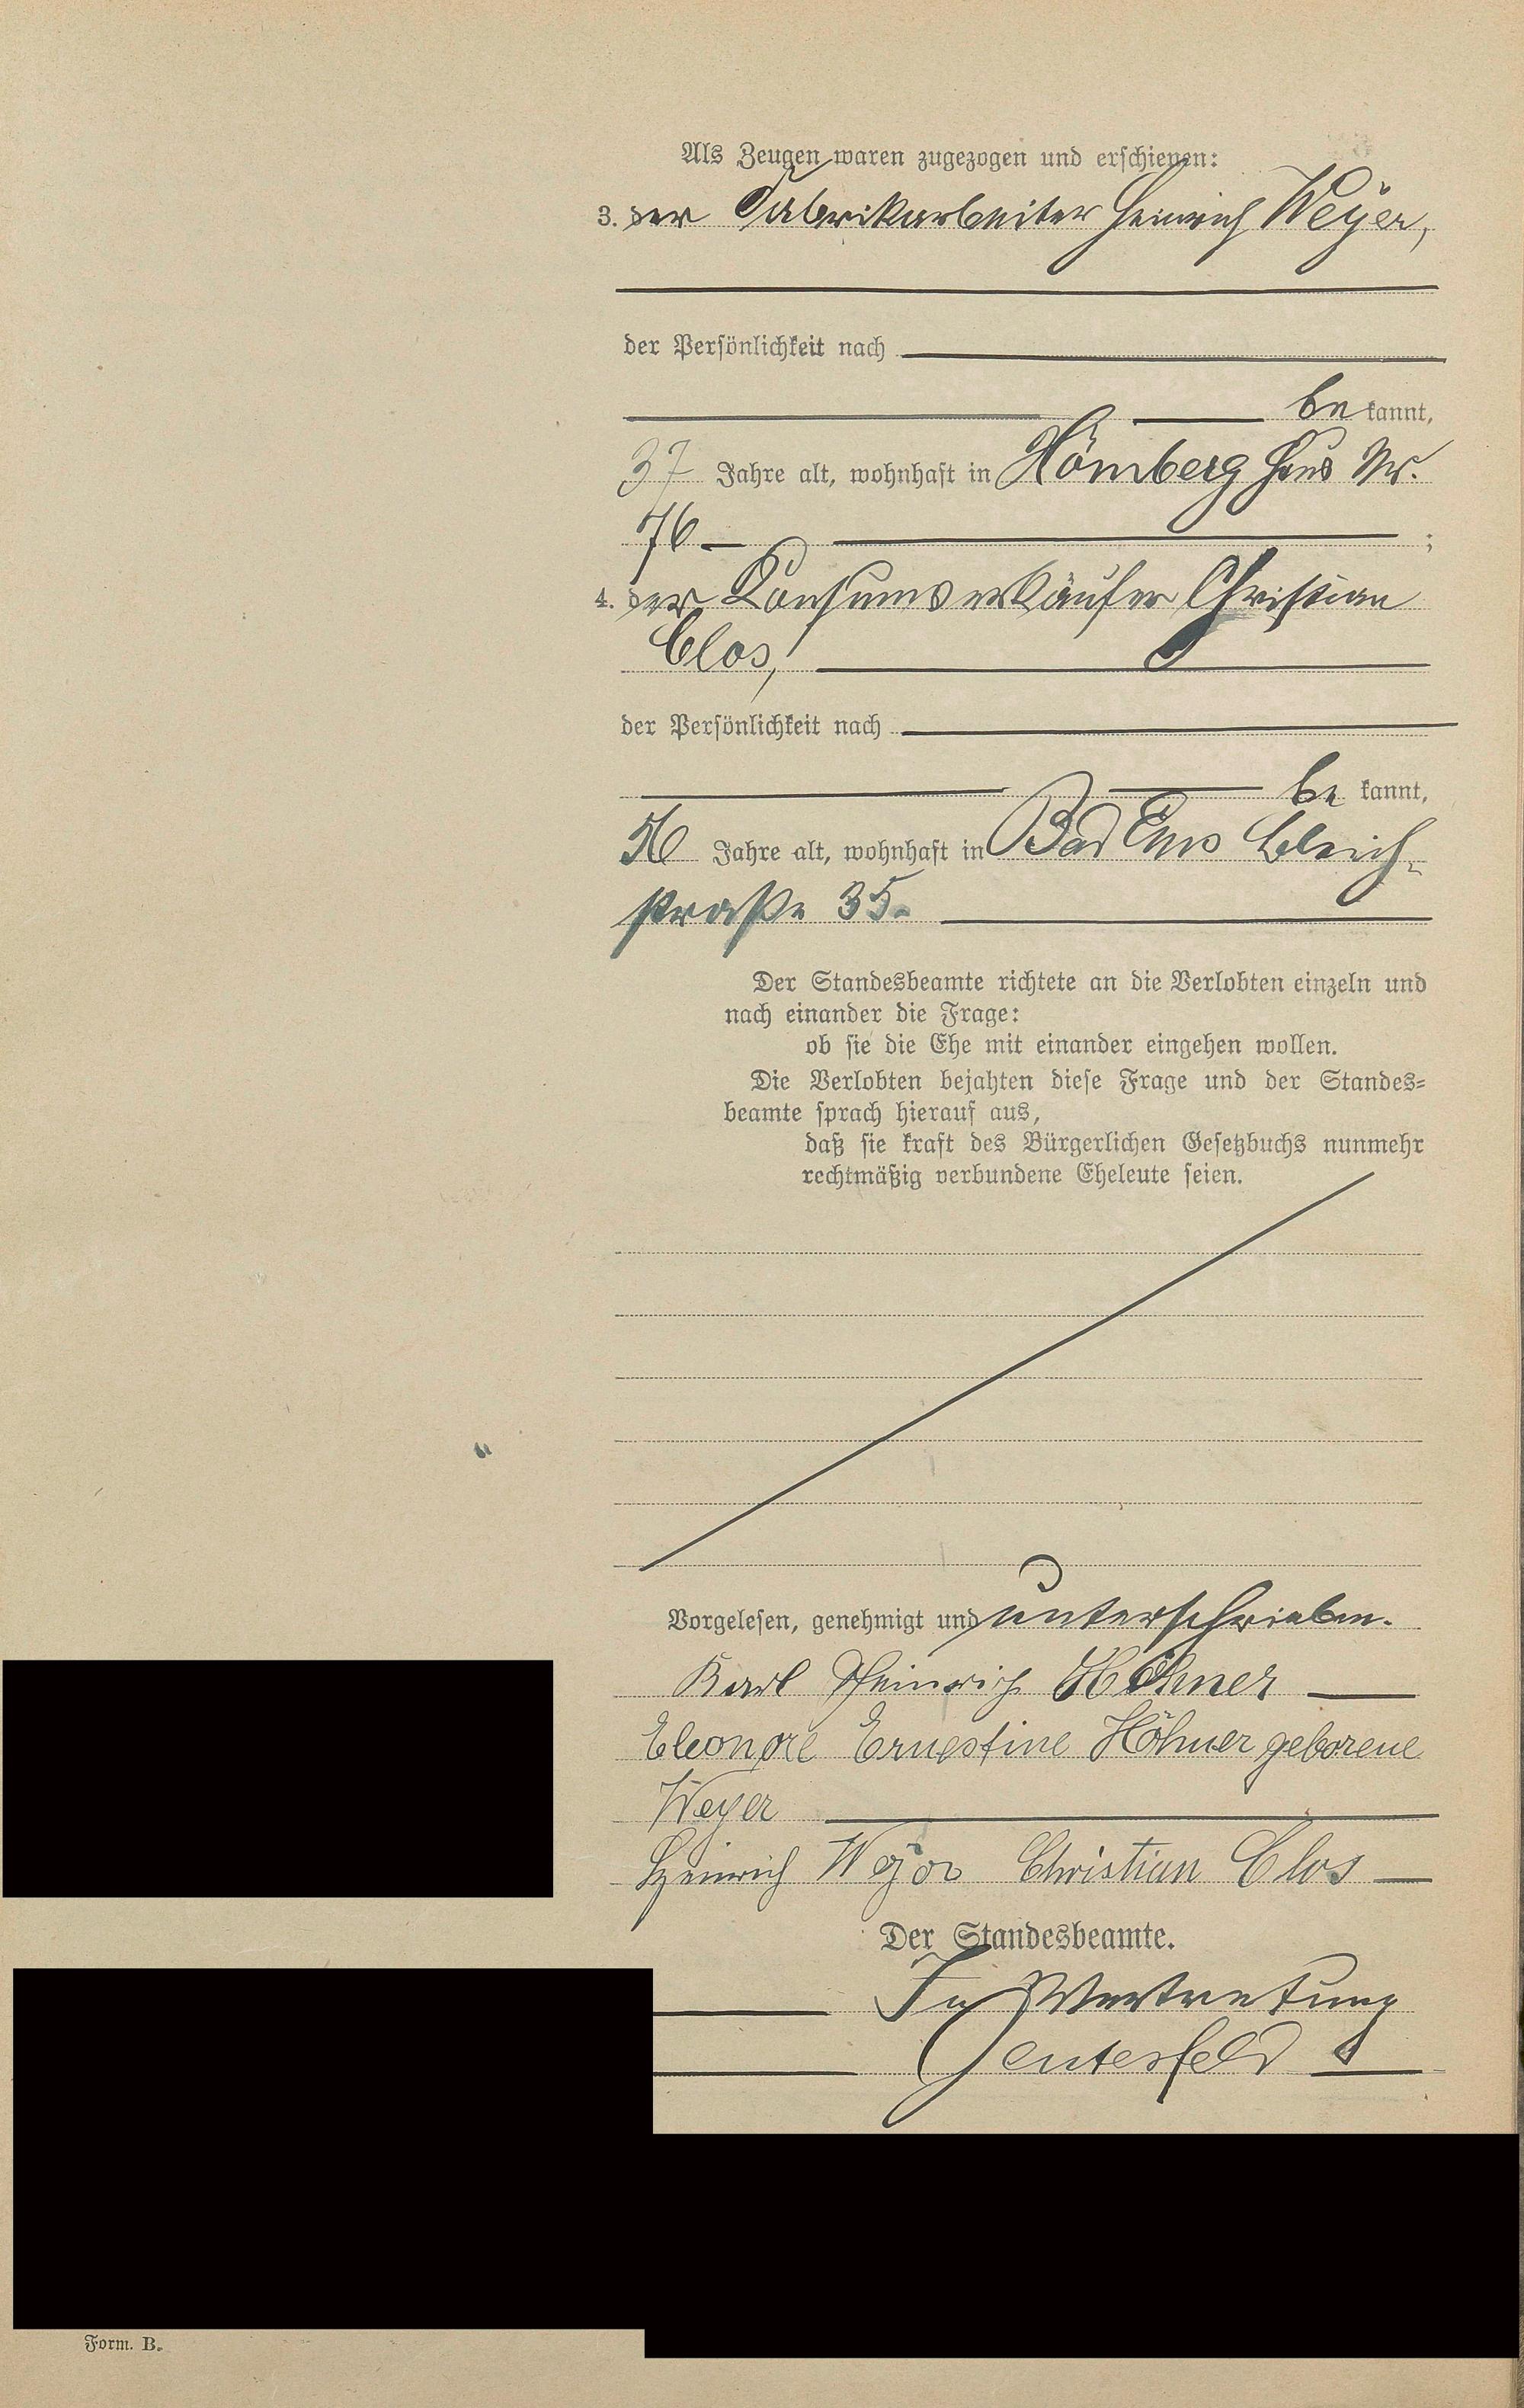 Als Zeugen waren zugezogen und erschienen:
3. der Fabrikarbeiter Heinrich Weyer,
der Persönlichkeit nach
be kannt,
37 Jahre alt, wohnhaft in Hömberg Haus Nr.
76
;
4. der Konsumverkäufer Christian
Clos,
der Persönlichkeit nach
be kannt,
Jahre alt, wohnhaft in Bad Ems Bleich-
straße 35.
Der Standesbeamte richtete an die Verlobten einzeln und
nach einander die Frage:
ob sie die Ehe mit einander eingehen wollen.
Die Verlobten bejahten diese Frage und der Standes-
beamte sprach hierauf aus,
daß sie kraft des Bürgerlichen Gesetzbuchs nunmehr
rechtmäßig verbundene Eheleute seien.
Vorgelesen, genehmigt und unterschrieben.
Karl Heinrich Höhner
Eleonore Ernestine Höhner geborene
Weyer
Heinrich Weyer Christian Clos
Der Standesbeamte.
In Vertretung
Form. B.